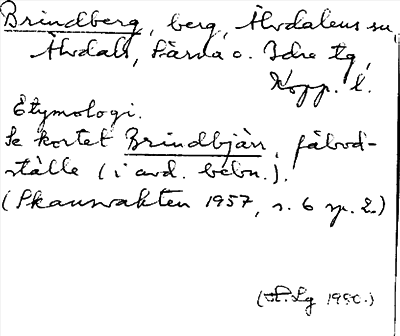 Brindberg, berg, Älvdalens sn,
Älvdals, Särna o. Idre tg,
Kopp. l.
Etymologi.
Se kortet Brindbjärr, fäbod-
ställe (i avd. bebn.).
(Skansvakten 1957, s. 6 sp. 2.)
(H.Lg 1980.)